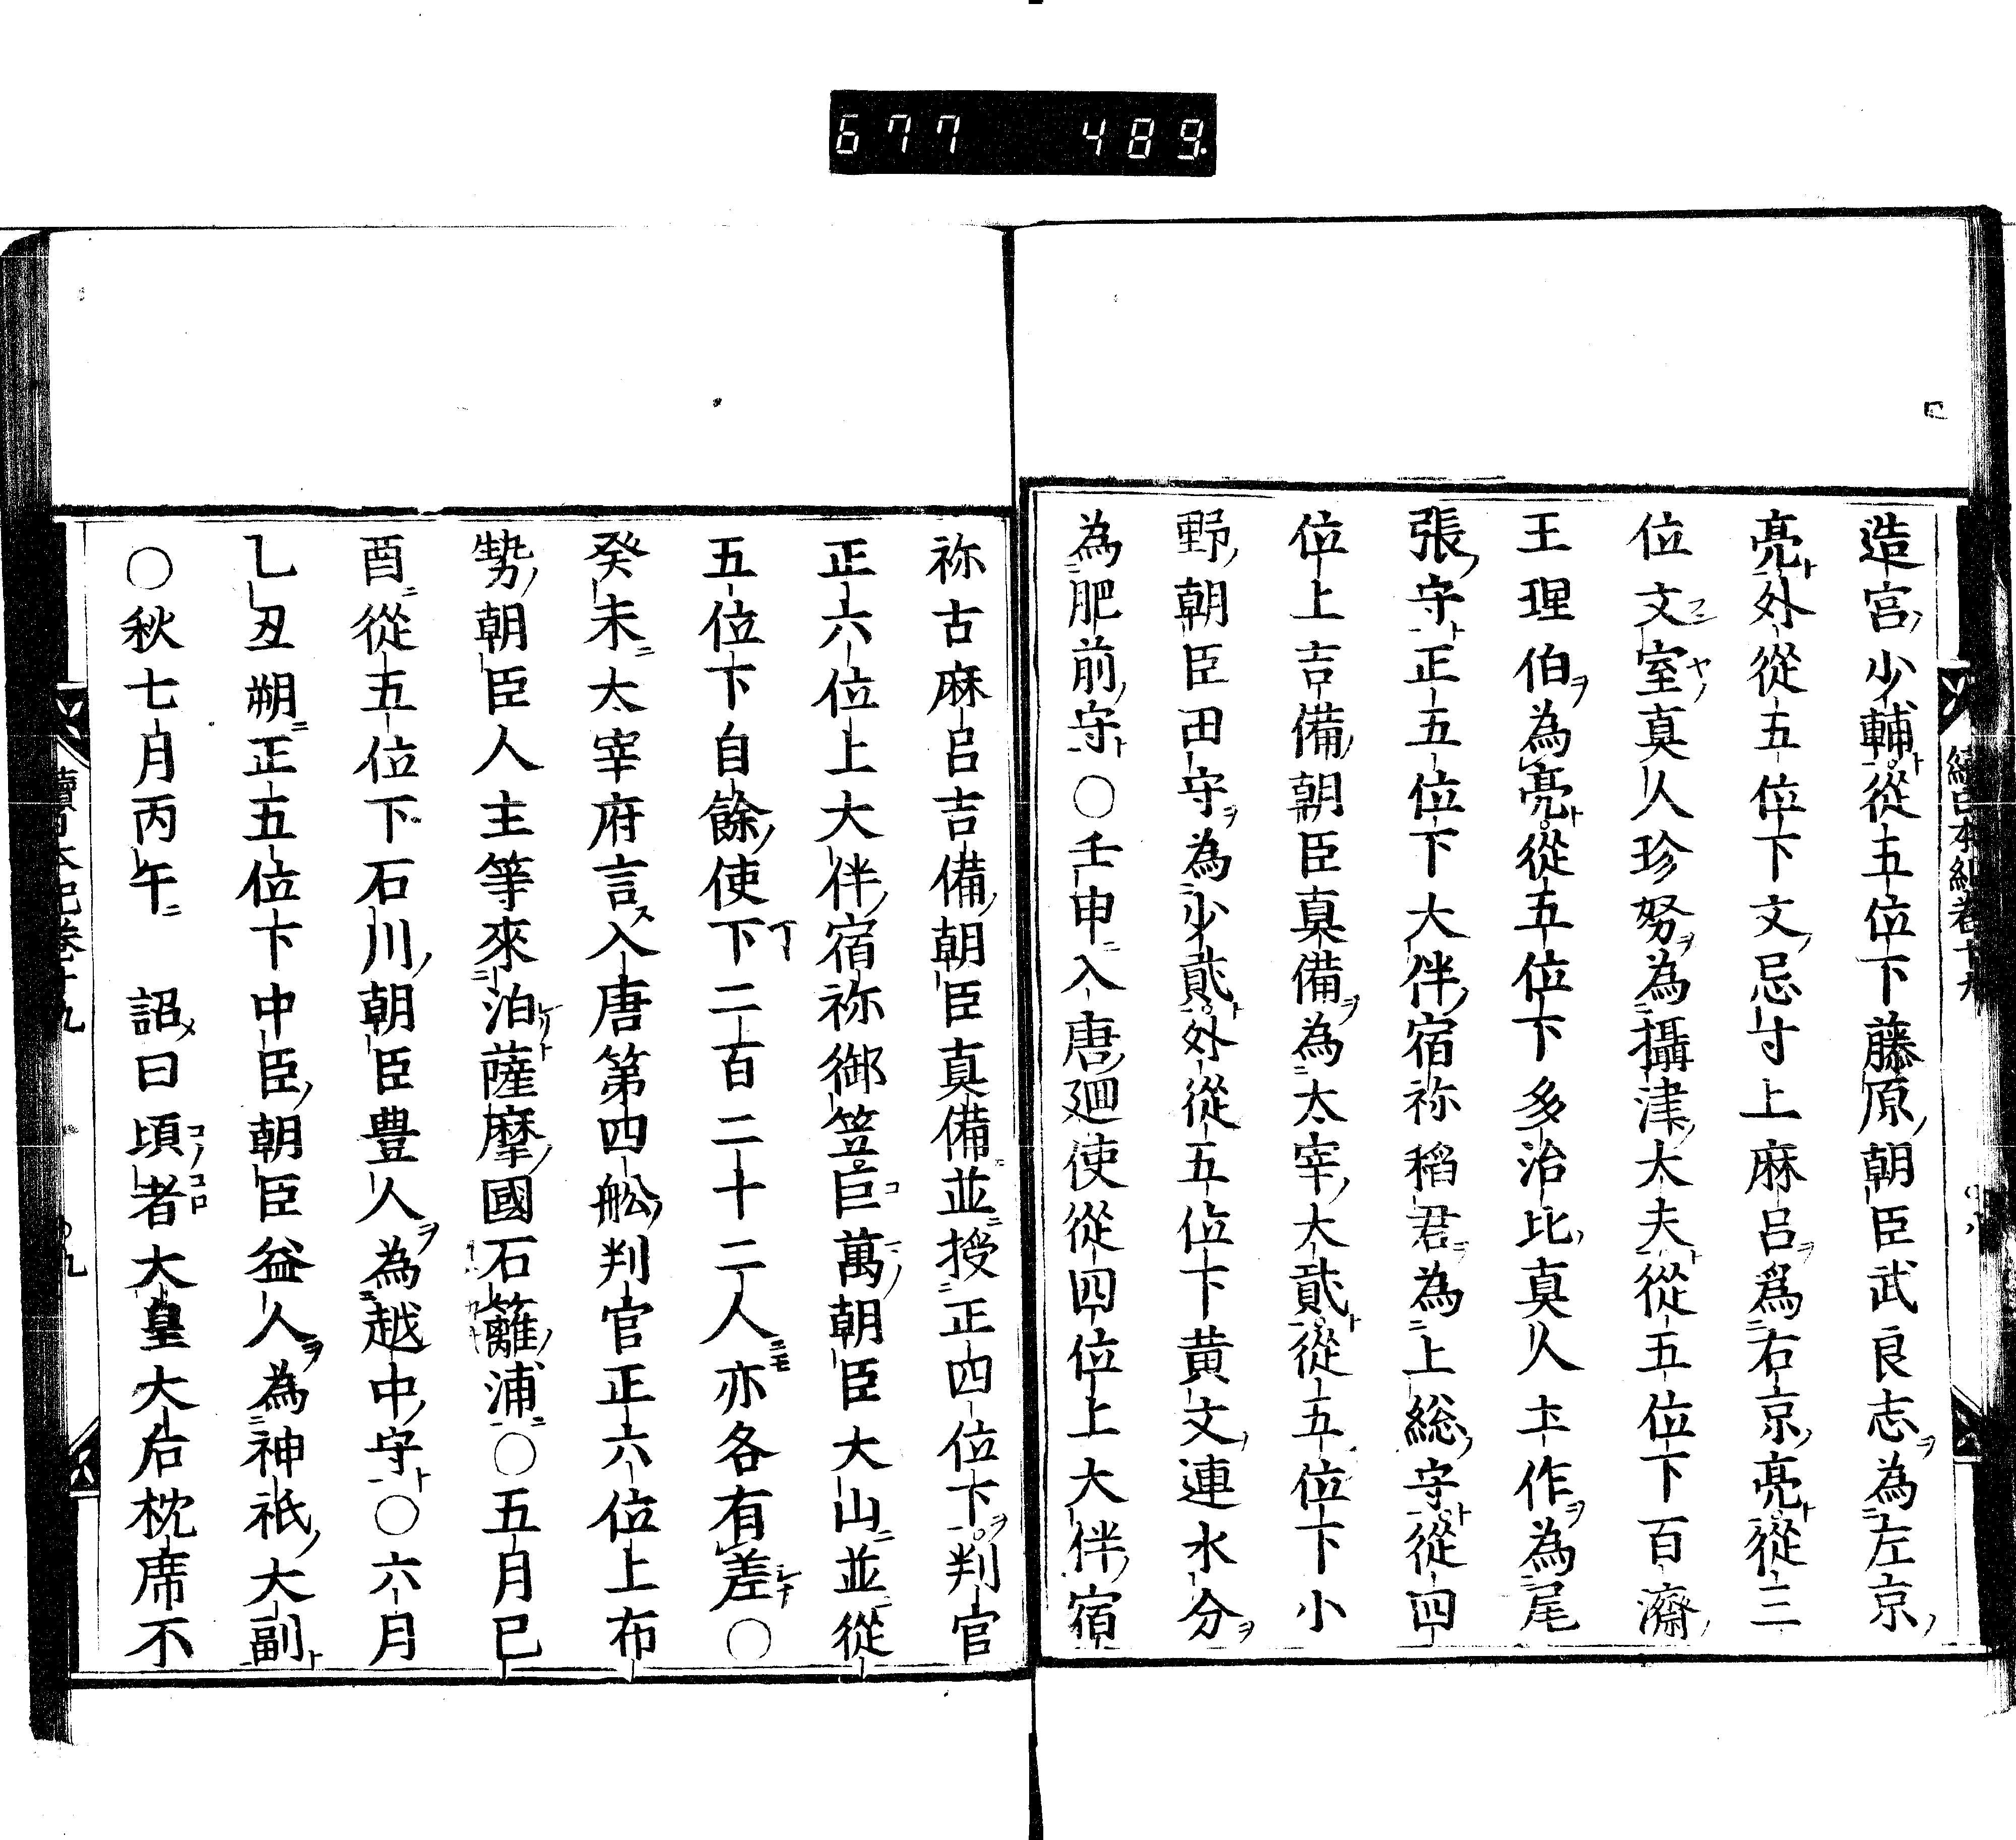 677 489.
造宮少輔從五位下藤原朝臣武良志為左京
亮外從五位下文忌寸上麻呂爲右京亮從三
位文室真人珍努為攝津大夫從五位下百濟
王理伯為亮從五位下多治比真人土作為尾
張守正五位下大伴宿祢稻君為上総守從四
位上吉備朝臣真備為太宰大貳從五位下小
野朝臣田守為少貳外從五位下黄文連水分
為肥前守〇壬申入唐廻使從四位上大伴宿
祢古麻呂吉備朝臣真備並授正四位下判官
正六位上大伴宿祢御笠巨萬朝臣大山並從
五位下自餘使下二百二十二人亦各有差〇
癸未太宰府言入唐第四舩判官正六位上布
勢朝臣人主等來泊薩摩國石籬浦〇五月已
酉從五位下石川朝臣豊人為越中守〇六月
乚丑朔正五位下中臣朝臣益人為神祇大副
〇秋七月丙午 詔曰頃者大皇大后枕席不